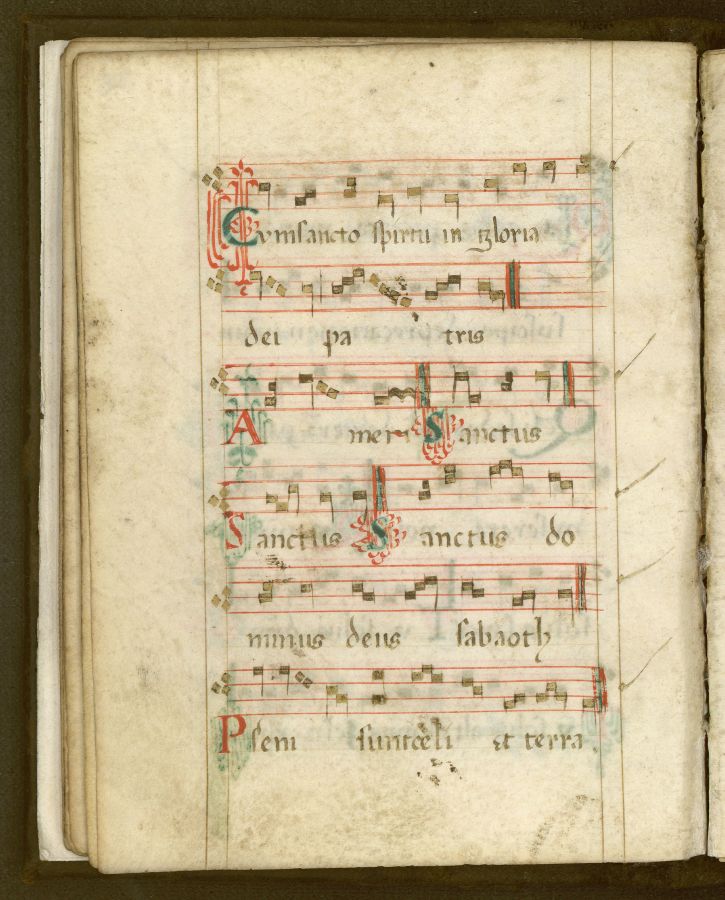 Cvm sancto spirtu in gloria
dei pa tris
A men Sanctus
Sanctus Sanctus do
minus deus sabaoth
Pleni sunt celi et terra